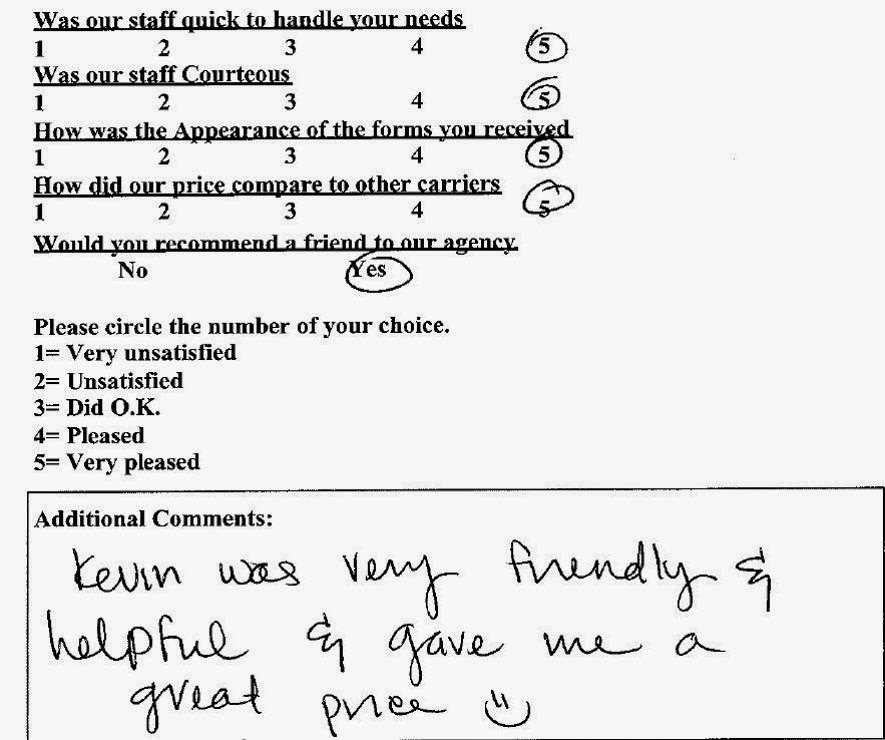 Was our staff quick to handle your needs
1 2 3 4 5
Was our staff Courteous
1 2 3 4 5
How was the Appearance of the forms you received
1 2 3 4 5
How did our price compare to other carriers
1 2 3 4 5
Would you recommend a friend to our agency.
No Yes
Please circle the number of your choice.
1= Very unsatisfied
2= Unsatisfied
3= Did O.K.
4= Pleased
5= Very pleased
Additional Comments:
Kevin was very friendly &
helpful & gave me a
great price